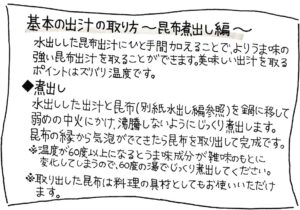 基本の出汁の取り方 ～昆布煮出し編～
水出しした昆布出汁にひと手間加えることで、よりうま味の
強い昆布出汁を取ることができます。美味しい出汁を取る
ポイントはズバリ温度です。
◆煮出し
水出しした出汁と昆布(別紙水出し編参照)を鍋に移して
弱めの中火にかけ、沸騰しないようにじっくり煮出します。
昆布の縁から気泡がでてきたら昆布を取出して完成です。
※温度が60度以上になるとうま味成分が雑味のもとに
変化してしまうので、60度の湯でじっくり煮出してください。
※取り出した昆布は料理の具材としてもお使いいただけ
ます。